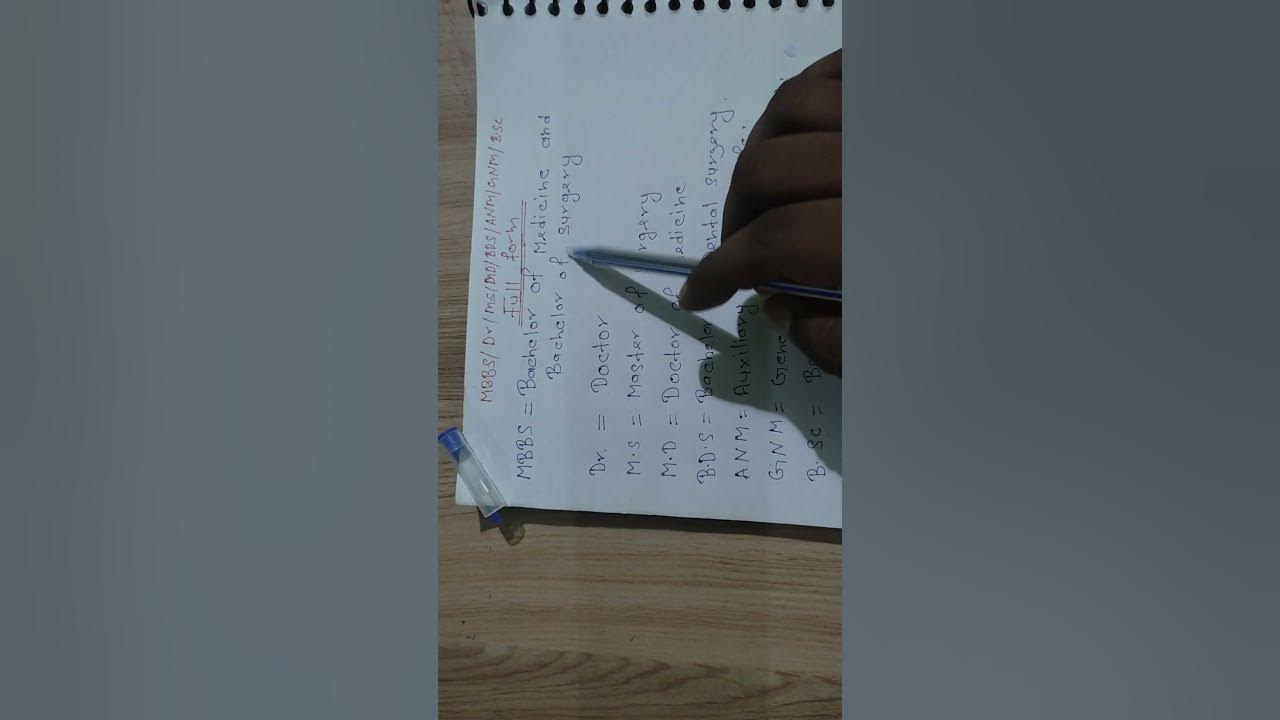 MBBS/Dr/MS/MD/BDS/ANM/GNM/BSc
Full form
MBBS = Bachelor of Medicine and
Bachelor of surgery
Dr. = Doctor
M.S = Master of
M.D = Doctor of
B.D.S = Bachelor surgery.
ANM = Auxiliary
GNM =
B.Sc =